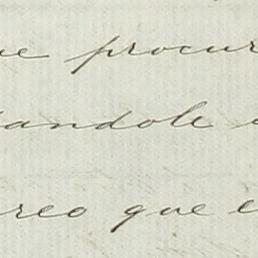 ue procur
andole
reo que e